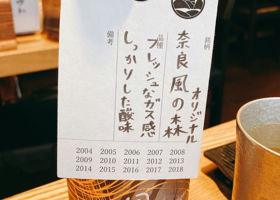 銘柄
オリジナル
奈良 風の森
品種
備考
フレッシュなガス感
しっかりした酸味
2004 2005 2006 2007 2008
2009 2010 2011 2012 2013
2014 2015 2016 2017 2018